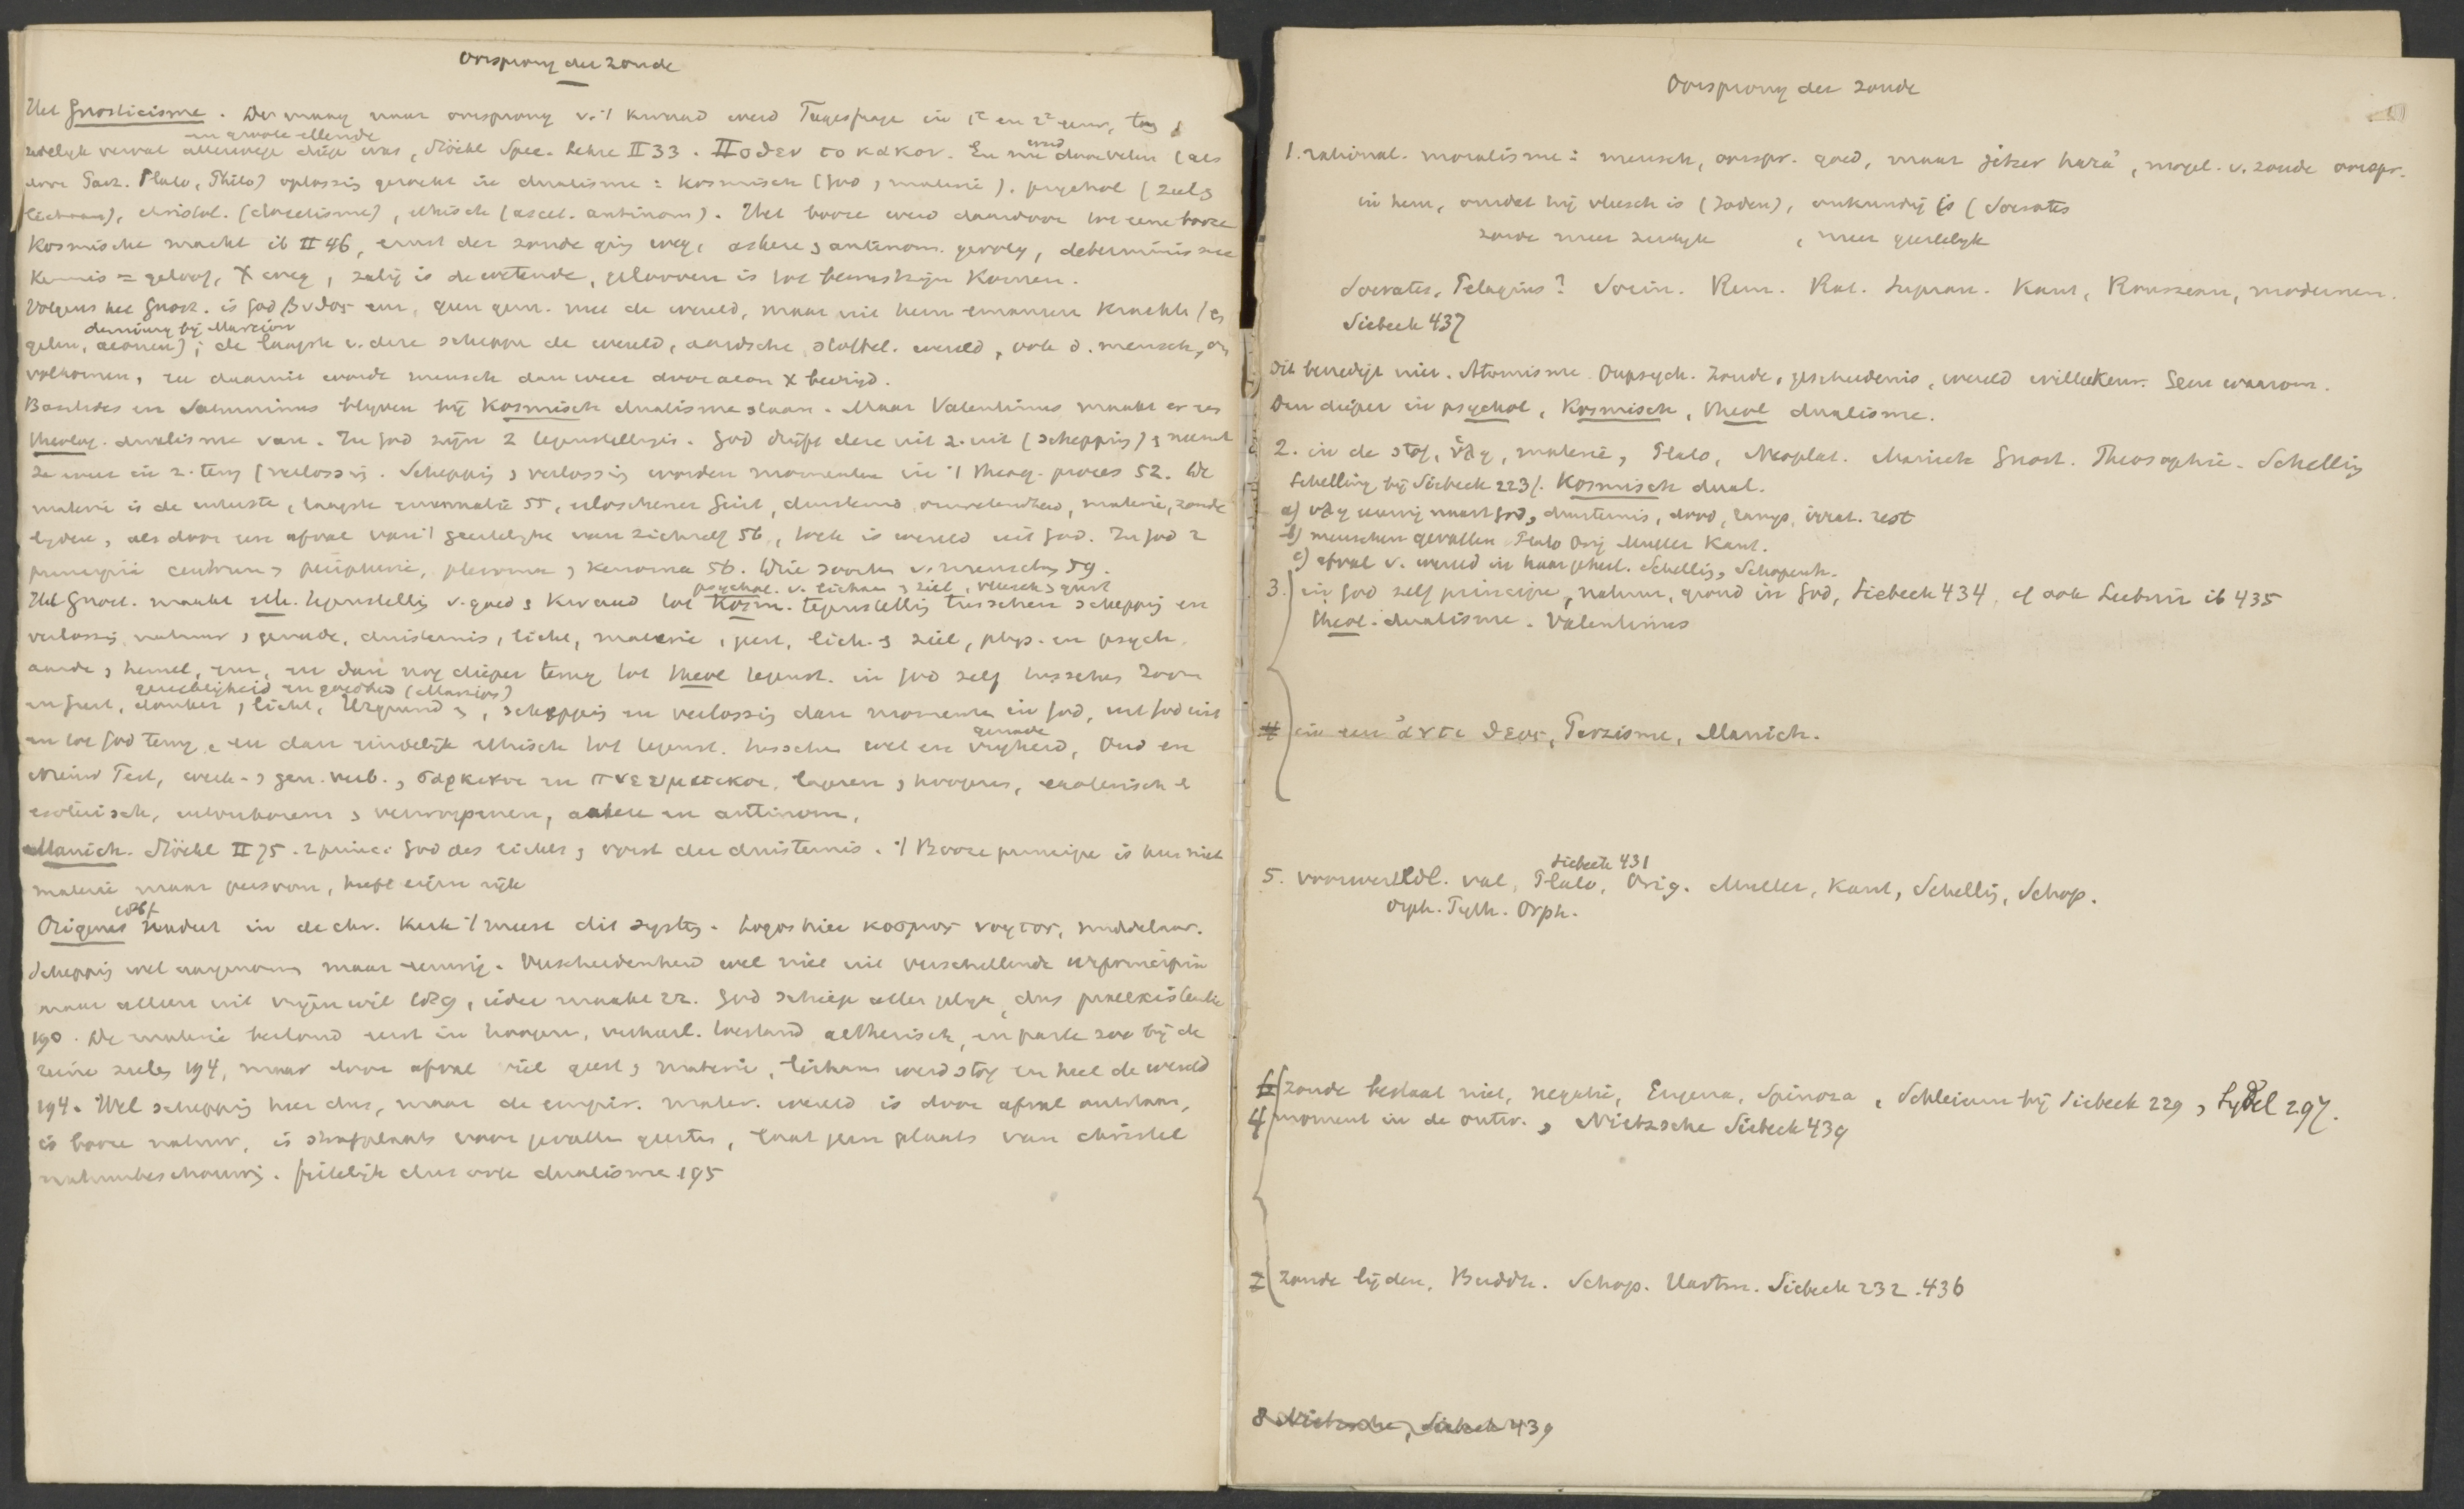 Oorsprong der zonde
Het Gnosticisme. De vraag naar oorsprong v. 't kwaad werd Tagesfrage in 1e en 2e eeuw, toen
en groote ellende
zedelijk verval allerwege diep was, Stöckl Spec. Lehre II 33. Ποθεν το κακον. En nu werd door velen (als
door Plato, Philo) oplossing gezocht in dualisme: kosmisch (God, materie), psychol (ziel en
lichaam), christol. (docetisme), ethisch (ascet. antinom). Het booze werd daardoor tot eene booze
kosmische macht ib II 46, ernst der zonde ging weg, ascese, antinom. gevolg, determinisme
kennis = geloof, X weg, zalig is de wetende, gelooven is tot bewustzijn komen.
Volgens het Gnost. is God βυθος een, geen gem. met de wereld, maar uit hem emaneeren krachten (en
demiurg bij Marcion
gelen, aeonen); de laagste v. deze scheppen de wereld, aardsche, stoffel. wereld, ook d. mensch, on
volkomen, en daaruit wordt mensch dan weer door aeon X bevrijd.
Basilides en Saturninus blijven bij kosmisch dualisme staan. Maar Valentinus maakt er een
theolog. dualisme van. In God zijn 2 tegenstellingen. God drijft deze uit z. uit (schepping) en neemt
ze weer in z. terug (verlossing. Schepping en verlossing worden momenten in 't theog. proces 52. De
materie is de uiterste, laagste emanatie 55, erloschener Geist, duisternis, onwetendheid, materie, zonde
lijden, als door een afval van 't geestelijke van zichzelf 56, toch is wereld uit God. In God 2
principia centrum en peripherie, pleroma en kenoma 56. Drie soorten v. menschen 59.
psychol. v. lichaam en ziel, vleesch en geest
Het Gnost. maakt eth. tegenstelling v. goed en kwaad tot kosm. tegenstelling tusschen schepping en
verlossing, natuur en genade, duisternis, licht, materie, geest, lich. en ziel, phys. en psych.
aarde en hemel, en dan nog dieper terug tot theol tegenst. in God zelf tusschen Zoon
gerechtigheid en goedheid (Marcion)
en Geest, donker en licht, Urgrund, schepping en verlossing dan momenten in God, uit God uit
en tot God terug, en dan eindelijk ethisch tot tegenst. tusschen wet en genade vrijheid, Oud en
Nieuw Test, werk- en gen. verb., σαρκικοι en πνευματικοι, lageren en hoogeren, exoterisch en
esoterisch, uitverkorenen en verworpenen, ascese en antinom.
Manich. Stöckl II 75. 2 princ: God des lichts en vorst der duisternis. 't Booze principe is hier niet
materie maar persoon, heeft eigen rijk
Origenes 178f. in de chr. kerk 't meest dit systeem. Logos hier κοσμος νοητος, middelaar.
Schepping wel aangenomen maar eeuwig. Verscheidenheid wel niet uit verschillende urprincipia
maar alleen uit vrijen wil 189, ieder maakt zz. God schiep allen gelijk, dus praeexistentie
190. De materie bestond eerst in hoogeren, verheerl. toestand aetherisch, en paste zoo bij de
reine zielen 194, maar door afval viel geest en materie, lichaam werd stof en heel de wereld
194. Wel schepping hier dus, maar de empir. mater. wereld is door afval ontstaan,
is booze natuur, is strafplaats voor gevallen geesten, laat geen plaats van christel
natuurbeschouwing. feitelijk dus ook dualisme 195
Oorsprong der zonde
1. rational. moralisme: mensch, oorspr. goed, maar jétzer hara', mogel. v. zonde oorspr.
in hem, omdat hij vleesch is (Joden), onkundig is (Socrates
zonde meer zinlijk, meer geestelijk
Socrates, Pelagius? Socin. Rem. Rat. Supran. Kant, Rousseau, modernen.
Siebeck 437
Dit bevredigt niet. Atomisme. Onpsych. Zonde, geschiedenis, wereld willekeur. Geen waarom.
Dan dieper in psychol, kosmisch, theol dualisme.
2. in de stof, ὕλη, materie, Plato, Neoplat. Manich Gnost. Theosophie. Schelling
Schelling bij Siebeck 223f. Kosmisch dual.
a) υλη eeuwig naast God, duisternis, dood, irrat. rest
b) menschen gevallen Plato Orig Muller Kant.
c) afval v. wereld in haar geheel. Schelling, Schopenh.
3. in God zelf principe, natuur, grond in God, Siebeck 434, cf ook Leibniz ib 435
theol. dualisme. Valentinus
4 in een ἀντι θεος, Parzisme, Manich.
5. voorwereldl. val, Plato, Orig. Muller, Kant, Schelling, Schop.
Siebeck 431
Orph. Pyth. Orph.
6 zonde bestaat niet, negatie, Erigena, Spinoza, Schleierm bij Siebeck 229, Lydel 297.
4 moment in de ontw., Nietzsche Siebeck 439
7 zonde lijden, Buddh. Schop. Hartm. Siebeck 232. 436
8 Nietzsche, Siebeck 439